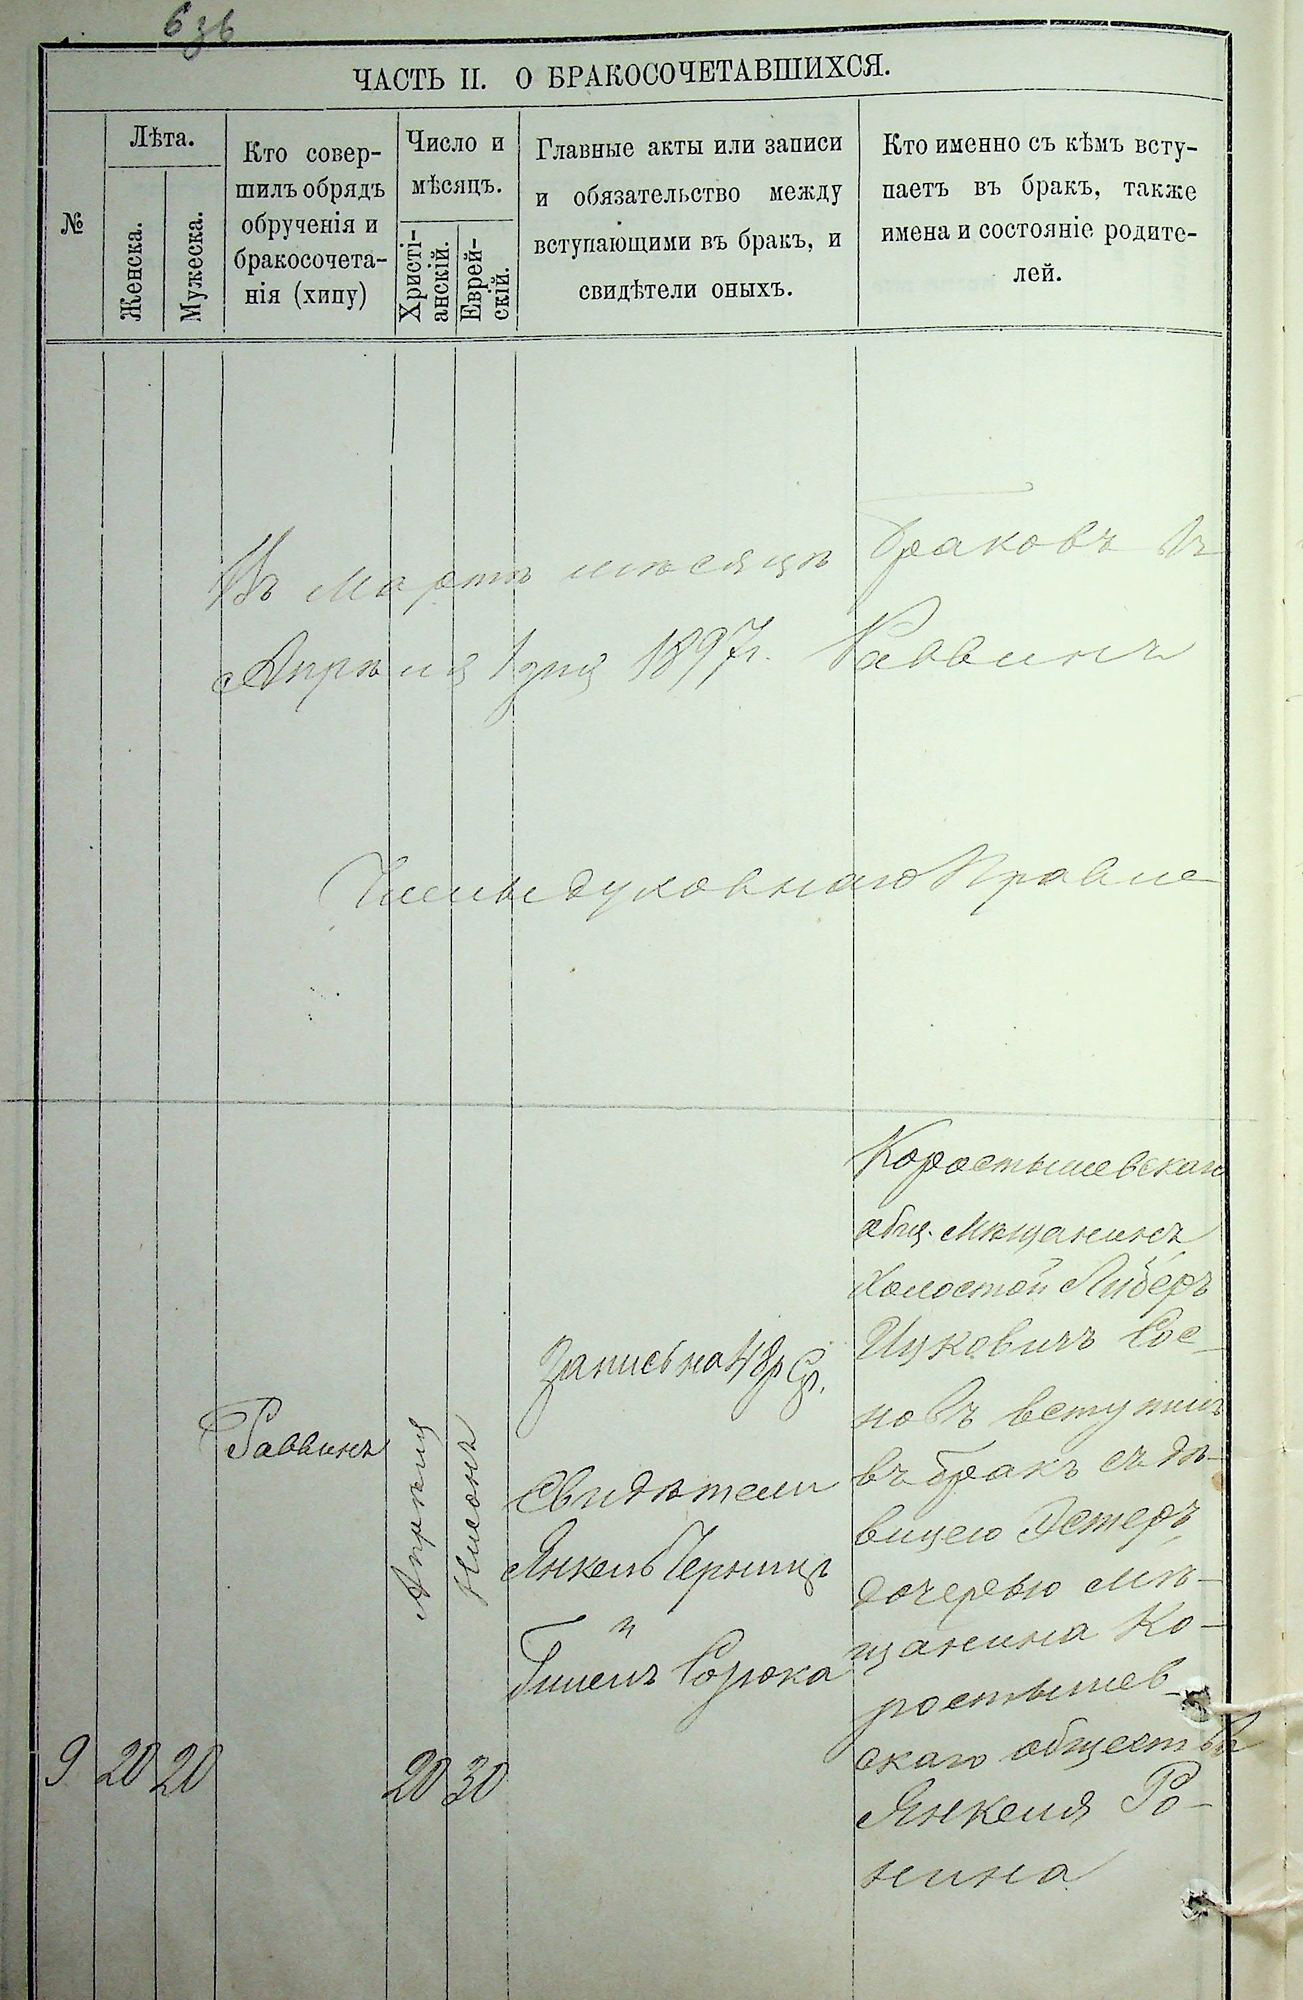 636
ЧАСТЬ II. О БРАКОСОЧЕТАВШИХСЯ.
№
Лѣта.
Женска.
Мужеска.
Кто совер-
шилъ обрядъ
обрученія и
бракосочета-
нія (хипу)
Число и
мѣсяцъ.
Христі-
анскій.
Еврей-
скій.
Главные акты или записи
и обязательство между
вступающими въ бракъ, и
свидѣтели оныхъ.
Кто именно съ кѣмъ всту-
паетъ въ бракъ, также
имена и состояніе родите-
лей.
Въ Мартѣ мѣсяцѣ браковъ
Апрѣля 1 дня 1897 г. Раввинъ
Члены духовнаго Правле
9
20
20
Раввинъ
Апрѣля
20
Нисонъ
30
Запись на 48 р Ср.
Свидѣтели
Янкель
и
Сорока
Коростышевскаго
общ. Мѣщанинъ
Холостой Либеръ
Ицковичъ Сос-
новъ вступилъ
въ бракъ съ дѣ-
вицею Эстеръ,
дочерью мѣ-
щанина Ко-
ростышев-
скаго общества
Янкеля Ро-
нина